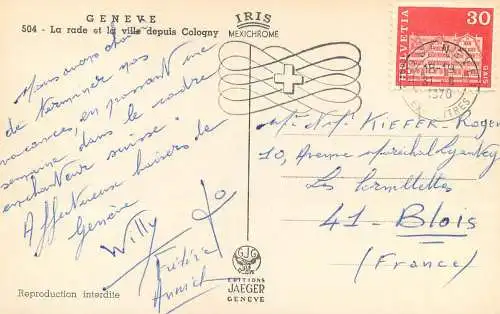 GENEVE
504 - La rade et la ville depuis Cologny
IRIS
MEXICHROME
HELVETIA
30
GAIS
1970
Nous avons choisi
de terminer nos
vacances, en passant une
semaine dans le cadre
enchanteur suisse.
Affectueux baisers de
Genève
Willy Jo
Frédéric
Annick
Mr. Mme KIEFER-Roger
10, Avenue Maréchal
Les
41 - Blois
(France)
GJG
EDITIONS
JAEGER
GENEVE
Reproduction interdite